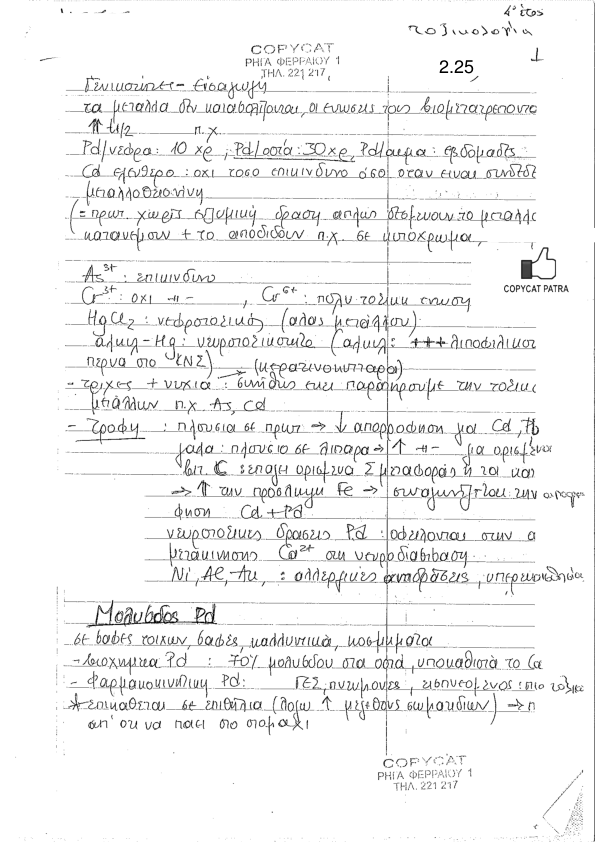 4° έτος
τοξικολογία
1
COPYCAT
ΡΗΓΑ ΦΕΡΡΑΙΟΥ 1
ΤΗΛ. 221 217
2.25
Γενικότητες - Εισαγωγή
τα μέταλλα δεν καταβολίζονται, οι ενώσεις τους βιομετατρέποντα
↑ t1/2 π.χ
Pd/νεφρά: 10 χρ, Pd/οστά: 30 χρ, Pd/αιμα: εβδομάδες
Cd ελεύθερο: οχι τοσο επικινδυνο όσο οταν ειναι συνδεδ
μεταλλοθειονίνη
(= πρωτ. χωρίς ενζυμική δραση απλως δεσμευουν το μεταλλο
κατανεμουν + το αποδιδουν π.χ. σε κυτοχρωμα,
COPYCAT PATRA
As3+: επικινδυνο
Cr3+: οχι -||- , Cr6+: πολυ τοξικη ενωση
HgCl2: νεφροτοξικος (αλας μετάλλου)
αλκυλ-Hg: νευροτοξικοτητα (αλκυλ: +++ λιποφιλικοτ
περνα στο ΚΝΣ) (κερατινοκυτταρα)
- τριχες + νυχια: συνήθως εκει παρατηρουμε την τοξικ
μετάλλων π.χ As, Cd
- Τροφη: πλουσια σε πρωτ → ↓ απορροφηση για Cd, Pb
γαλα: πλουσιο σε λιπαρα → ↑ -||- για ορισμενα
βιτ. C ορισμενα Σ μεταφοράς ή τα
→ ↑ την πρόσληψη Fe → την απορρο
φηση Cd + Pd
νευροτοξικες δρασεις Pd: οφειλονται στην α
μετακινησης Ca2+ στη νευροδιαβιβαση
Ni, Al, Au,: αλλεργικες αντιδράσεις, υπερευαισθησια
Μολυβδος Pd
σε βαφες τοιχων, βαφές, καλλυντικά, κοσμηματα
- βιοχημεια Pd: 70% μολυβδου στα οστά, υποκαθιστά το Ca
- Φαρμακοκινητικη Pd: ΓΕΣ, πνευμονες, εισπνεομενος: πιο τοξικο
* επικαθεται σε επιθήλια (λογω ↑ μεγεθους σωματιδιων) → π
απ' οτι να παει στο στομαχι
COPYCAT
ΡΗΓΑ ΦΕΡΡΑΙΟΥ 1
ΤΗΛ. 221 217